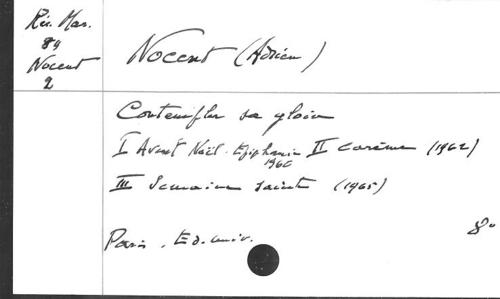 Rés. Mas.
84
Nocent
2
Nocent (Adrien)
Contempler sa gloire
I Avent Noël. Epiphanie II Carême (1962)
1960
III Semaine sainte (1965)
Paris, Ed. univ.
8°